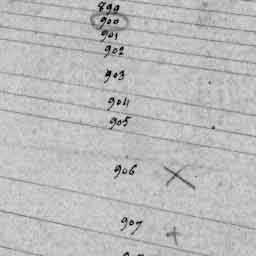 899
900
901
902
903
904
905
906 X
907 +